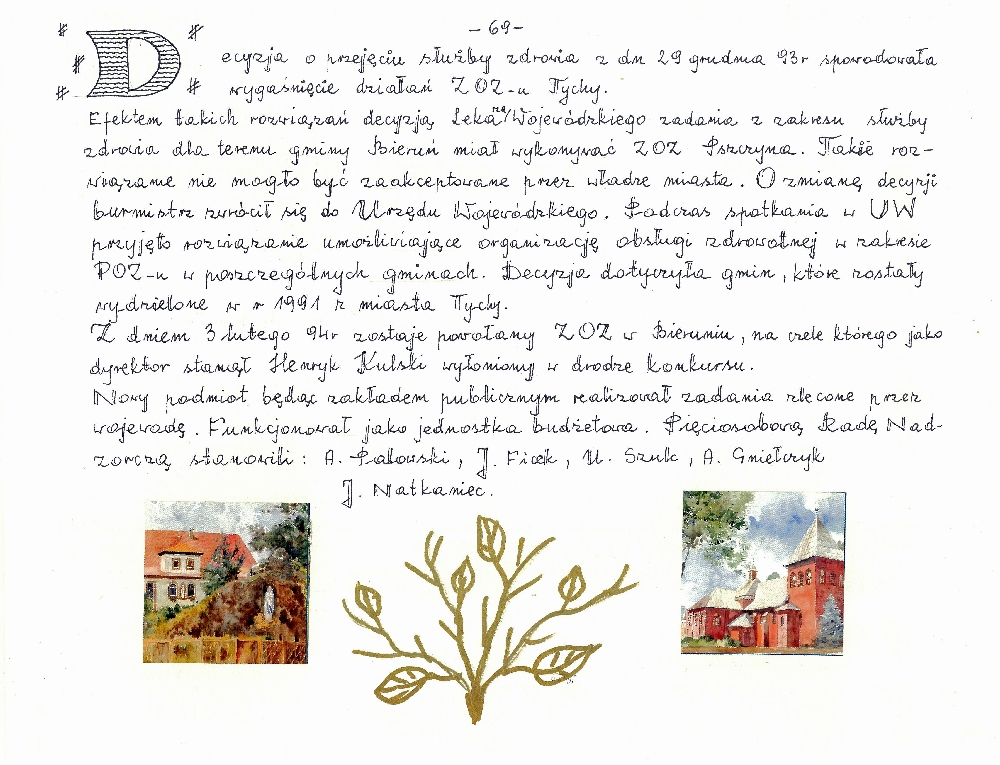 - 69 -
Decyzja o przejęciu służby zdrowia z dn 29 grudnia 93r spowodowała
wygaśnięcie działań ZOZ-u Tychy.
Efektem takich rozwiązań decyzją Lekarza Wojewódzkiego zadania z zakresu służby
zdrowia dla terenu gminy Bieruń miał wykonywać ZOZ Pszczyna. Takie roz-
wiązanie nie mogło być zaakceptowane przez władze miasta. O zmianę decyzji
burmistrz zwrócił się do Urzędu Wojewódzkiego. Podczas spotkania w UW
przyjęto rozwiązanie umożliwiające organizację obsługi zdrowotnej w zakresie
POZ-u w poszczególnych gminach. Decyzja dotyczyła gmin, które zostały
wydzielone w r 1991 z miasta Tychy.
Z dniem 3 lutego 94r zostaje powołany ZOZ w Bieruniu, na czele którego jako
dyrektor stanął Henryk Kulski wyłoniony w drodze konkursu.
Nowy podmiot będąc zakładem publicznym realizował zadania zlecone przez
wojewodę. Funkcjonował jako jednostka budżetowa. Pięcioosobową Radę Nad-
zorczą stanowili : A. Pałowski, J. Ficek, U. Szulc, A. Gniełczyk
J. Natkaniec.